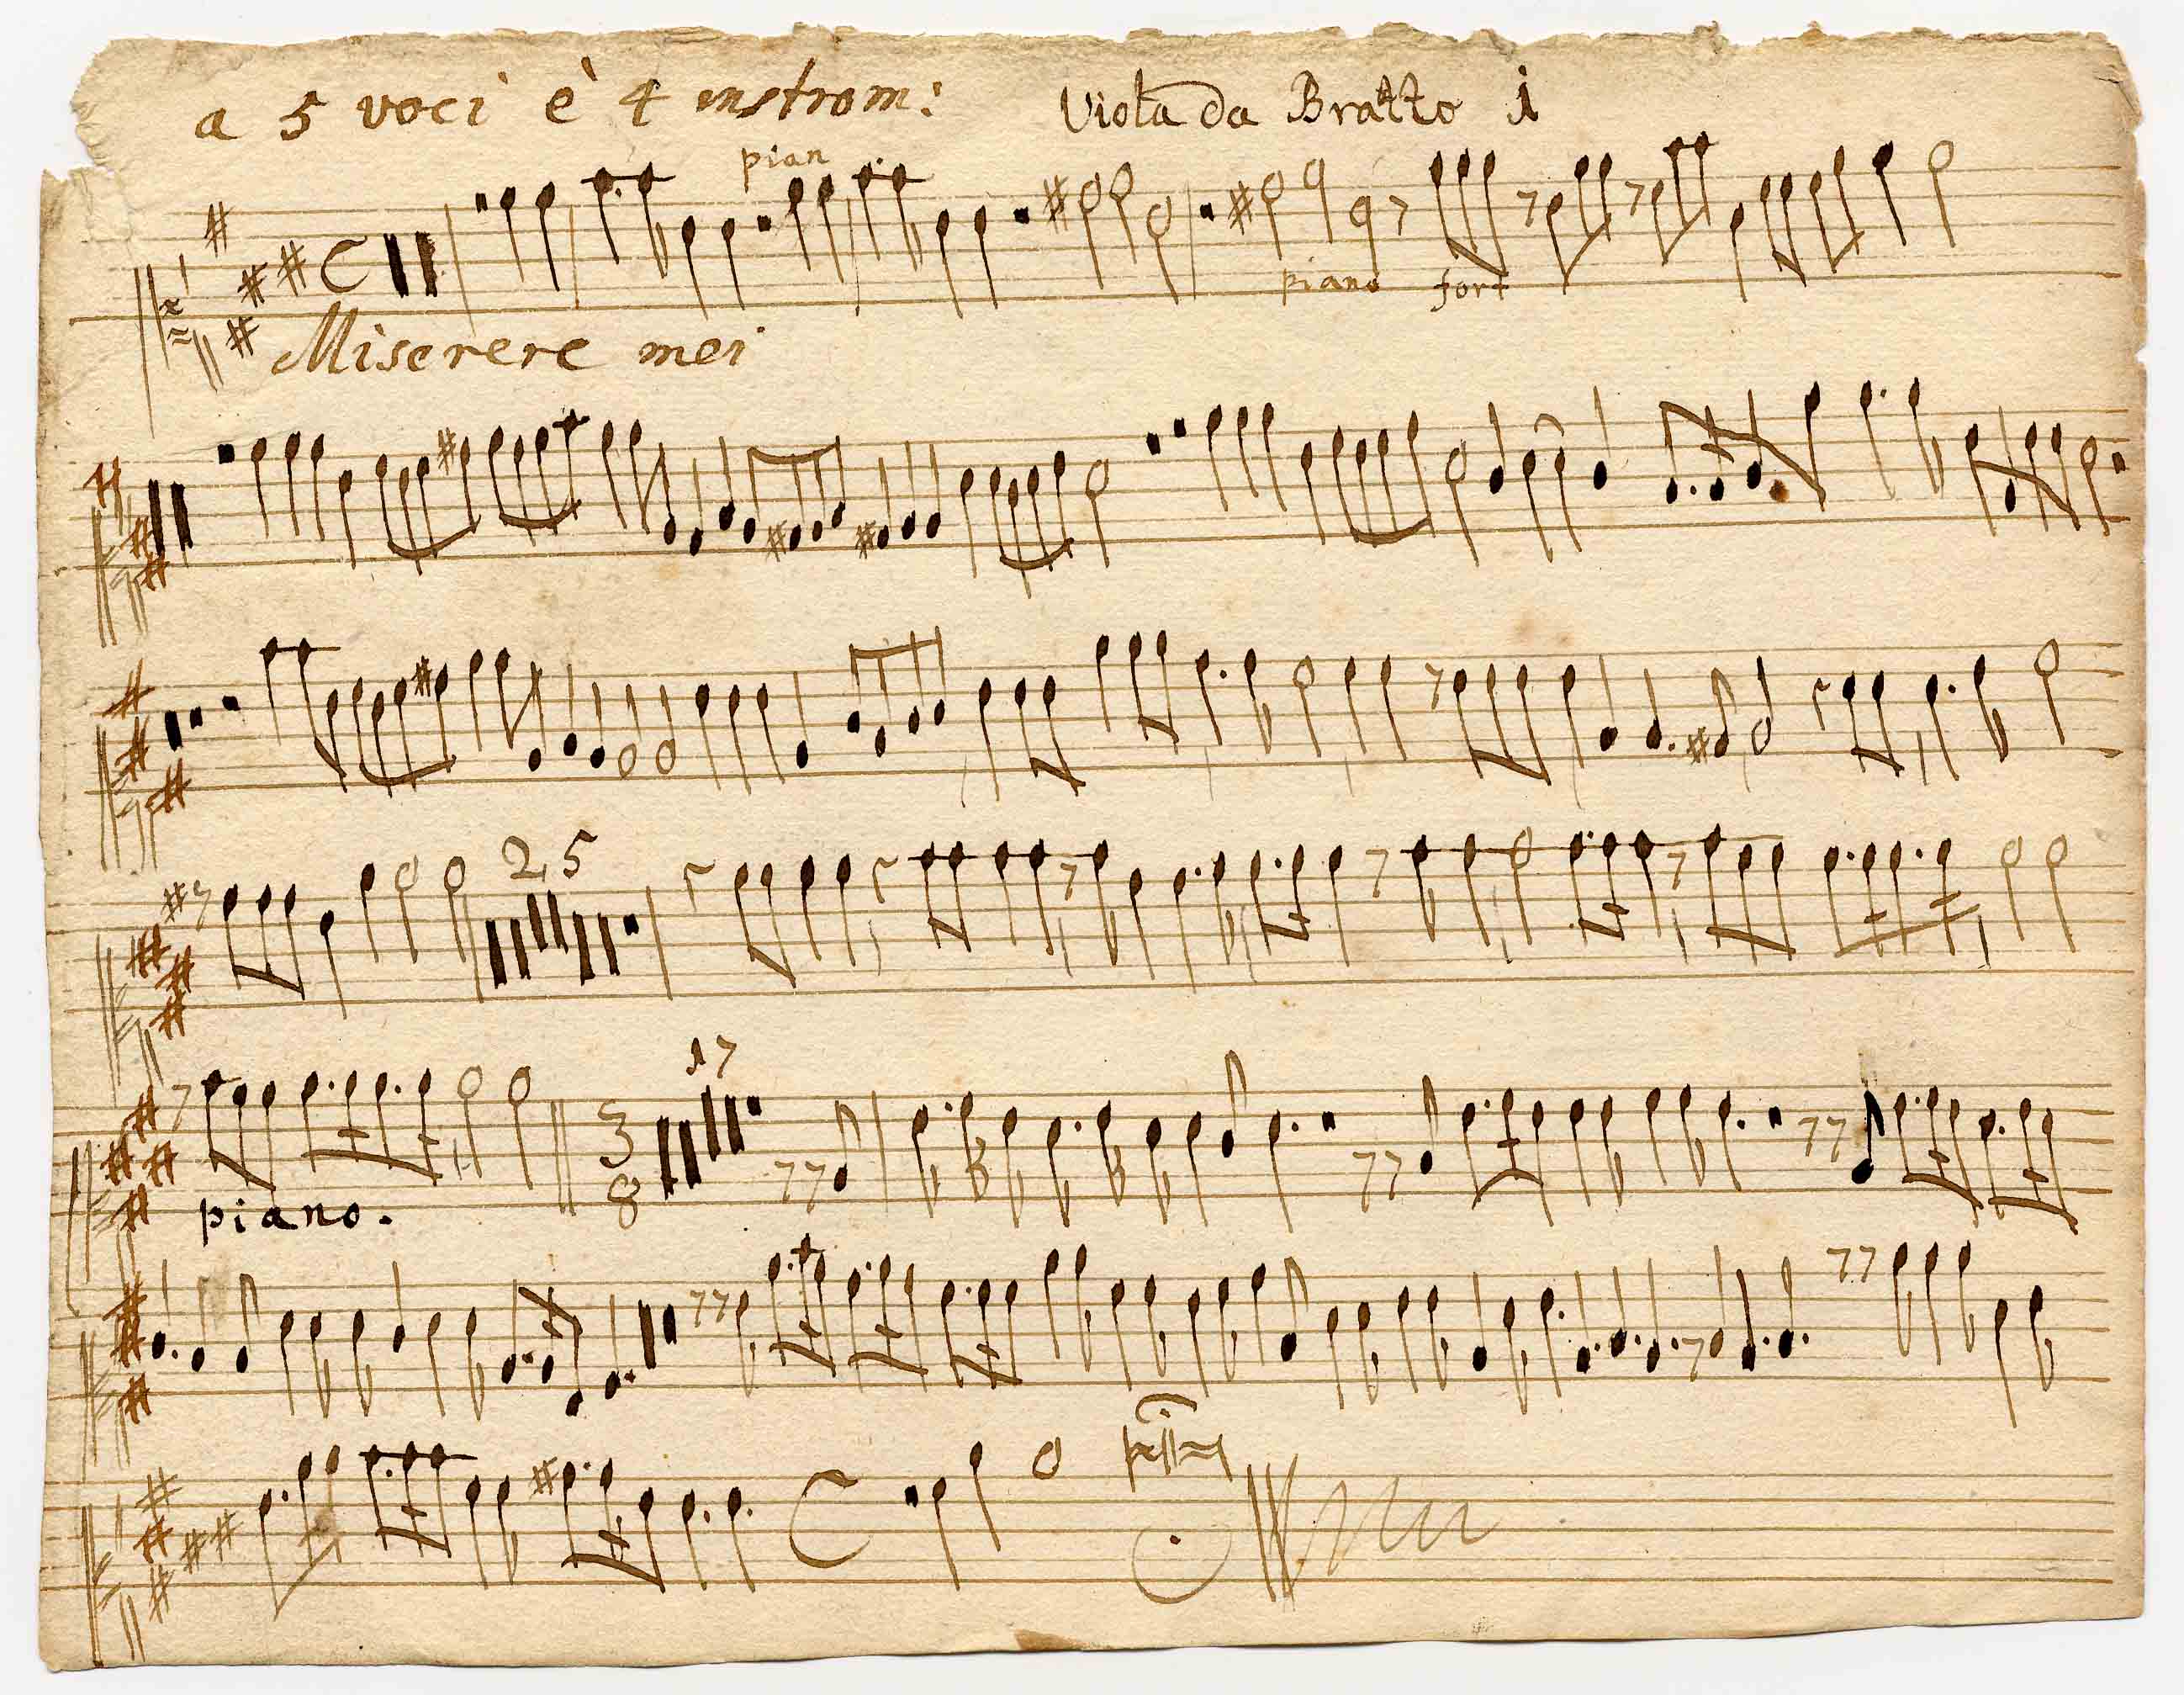 a 5 voci è 4 instrom: Viola da Bratto i
pian
piano fort
Miserere mei
2,5
17
3
8
piano.